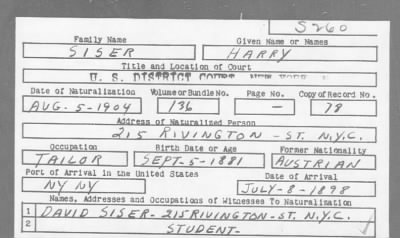 S260
Family Name Given Name or Names
SISER HARRY
Title and Location of Court
U. S. DISTRICT COURT, NEW YORK
Date of Naturalization Volume or Bundle No. Page No. Copy of Record No.
AUG. 5-1904 136 — 78
Address of Naturalized Person
215 RIVINGTON - ST. N.Y.C.
Occupation Birth Date or Age Former Nationality
TAILOR SEPT-5-1881 AUSTRIAN
Port of Arrival in the United States Date of Arrival
NY NY JULY-8-1898
Names, Addresses and Occupations of Witnesses To Naturalization
1 DAVID SISER- 215 RIVINGTON-ST. N.Y.C.
2 STUDENT-